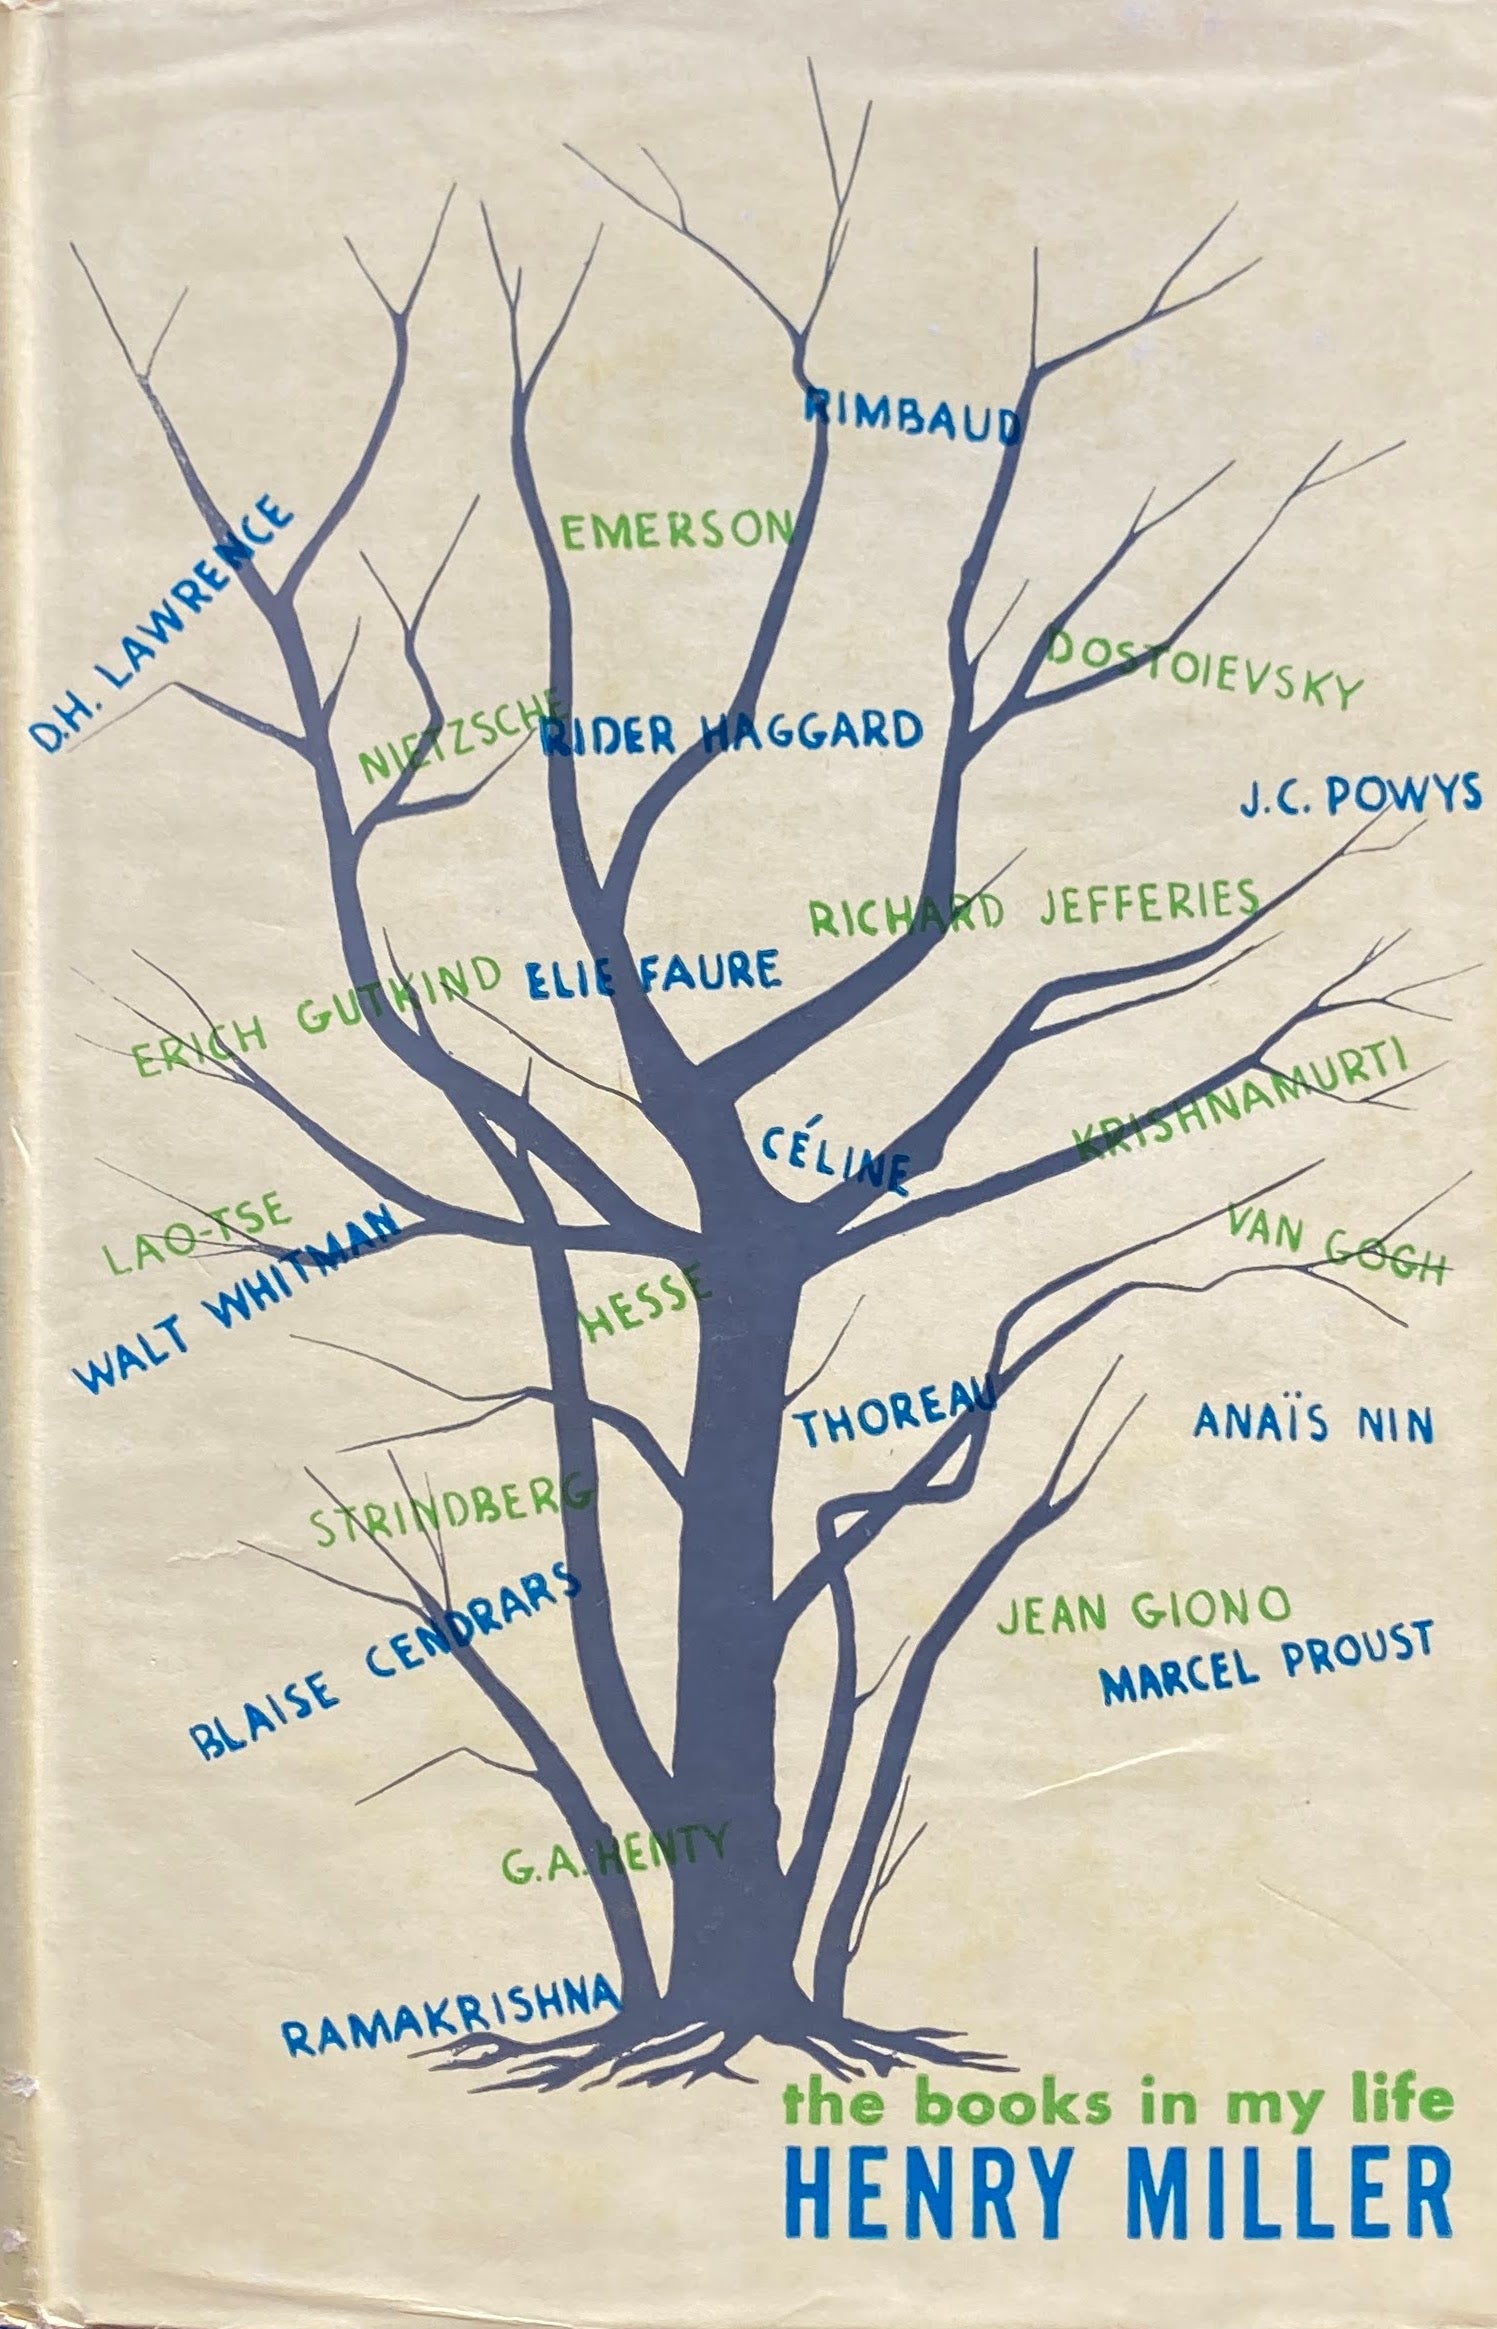 RIMBAUD
EMERSON
D.H. LAWRENCE
DOSTOIEVSKY
NIETZSCHE
RIDER HAGGARD
J.C. POWYS
RICHARD JEFFERIES
ERICH GUTKIND
ELIE FAURE
KRISHNAMURTI
CÉLINE
LAO-TSE
WALT WHITMAN
VAN GOGH
HESSE
THOREAU
ANAÏS NIN
STRINDBERG
BLAISE CENDRARS
JEAN GIONO
MARCEL PROUST
G.A. HENTY
RAMAKRISHNA
the books in my life
HENRY MILLER